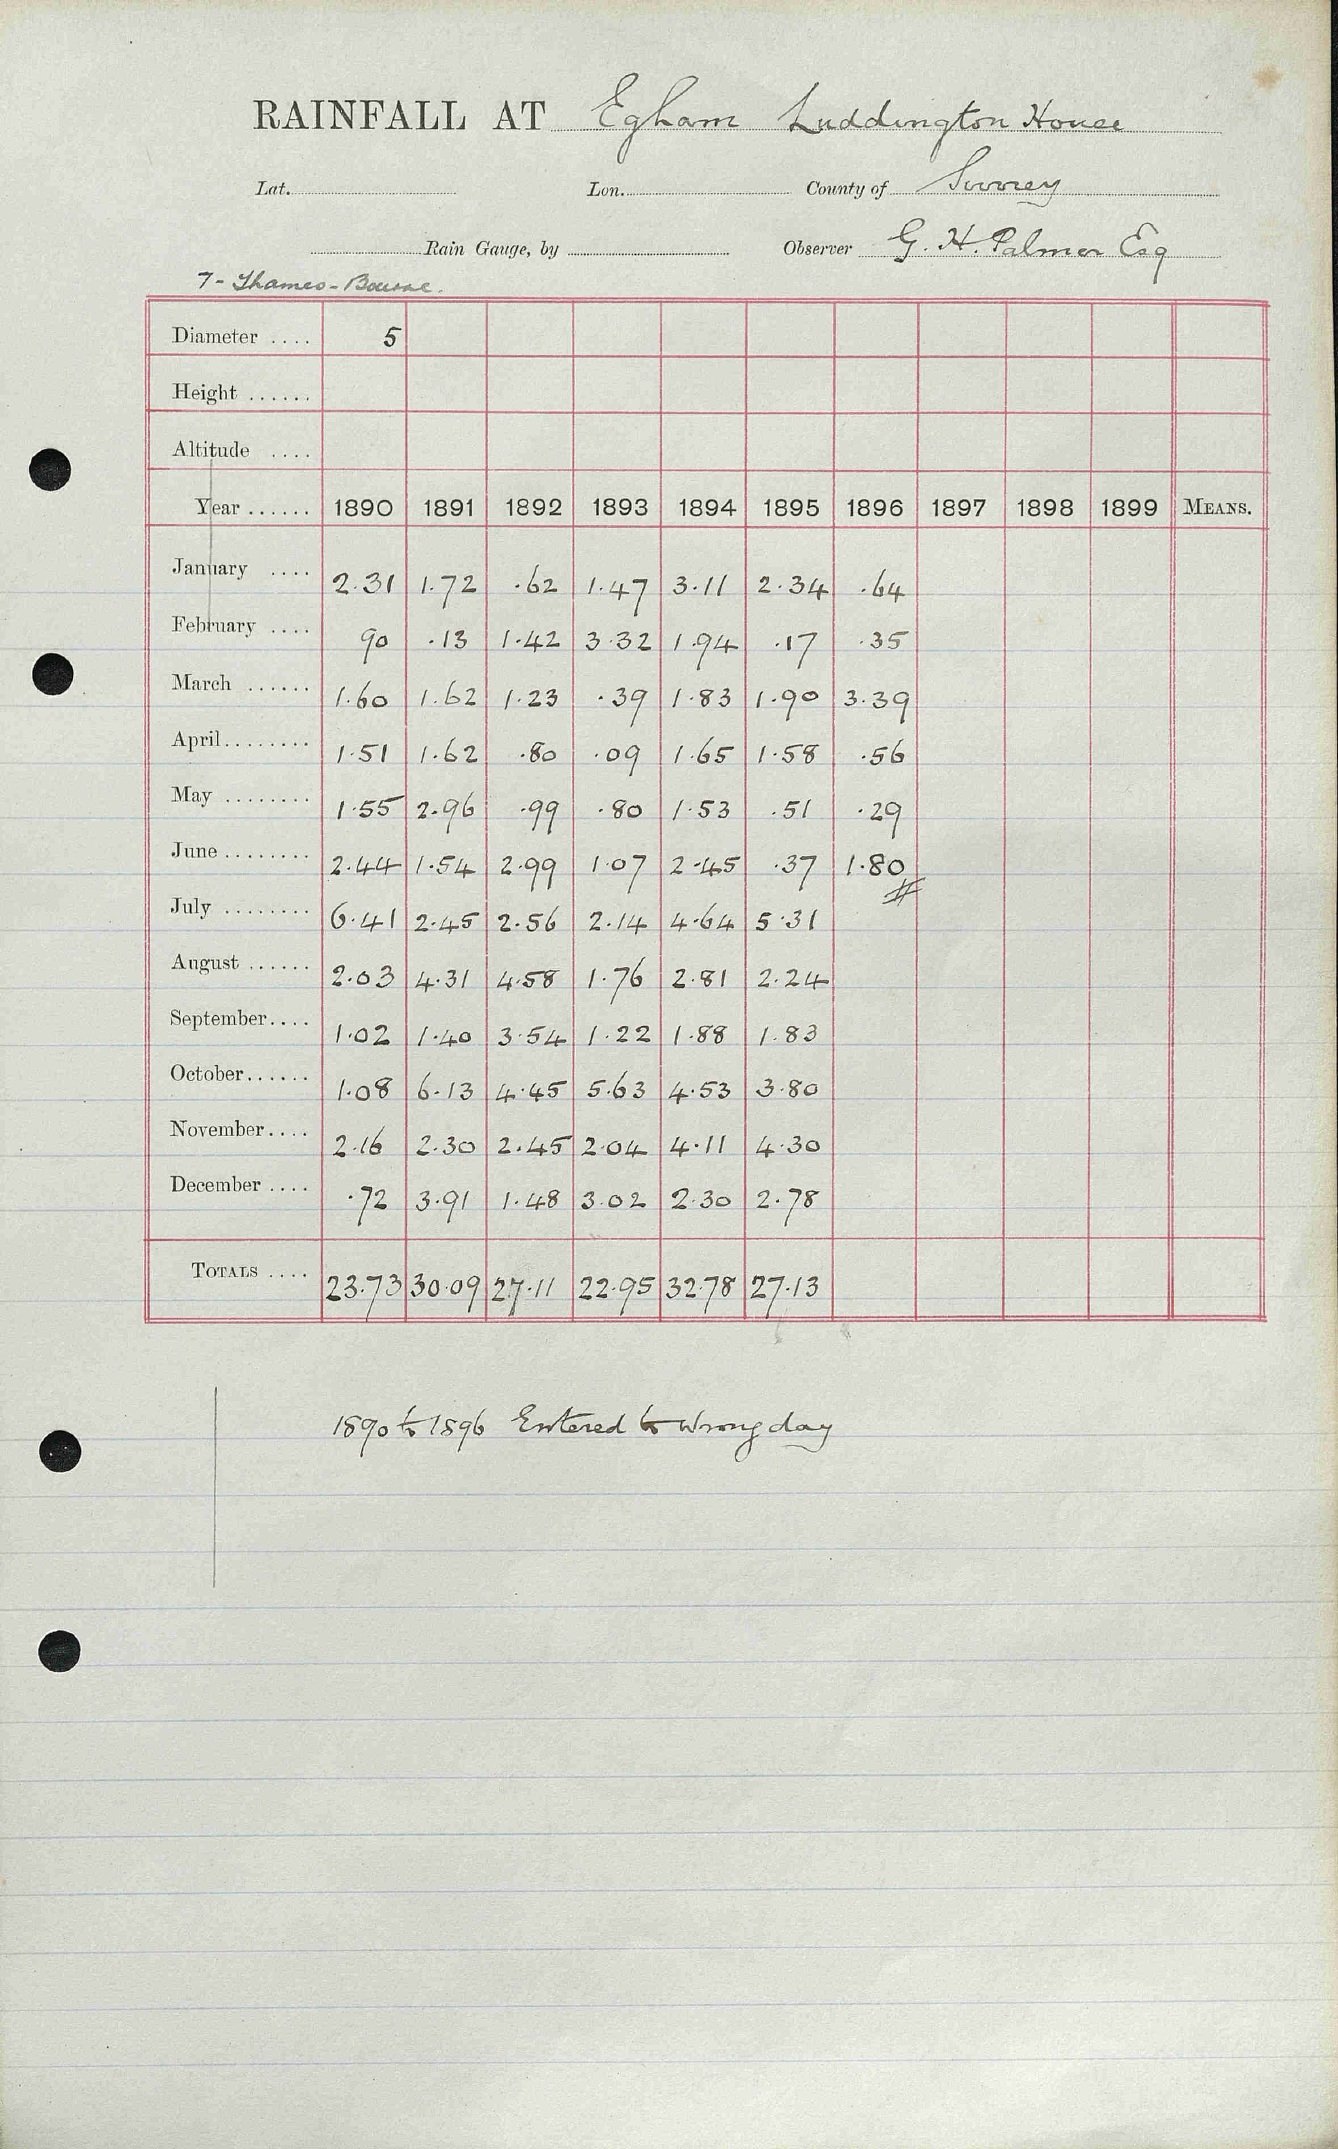 RAINFALL AT Egham Luddington House
Lat. Lon. County of Surrey
Rain Gauge, by Observer G. H. Palmer Esq
7 - Thames - Bourne.
Diameter .... 5
Height ......
Altitude ....
Year ...... 1890 1891 1892 1893 1894 1895 1896 1897 1898 1899 MEANS.
January .... 2.31 1.72 .62 1.47 3.11 2.34 .64
February .... 90 .13 1.42 3.32 1.94 .17 .35
March ...... 1.60 1.62 1.23 .39 1.83 1.90 3.39
April........ 1.51 1.62 .80 .09 1.65 1.58 .56
May ........ 1.55 2.96 .99 .80 1.53 .51 .29
June ........ 2.44 1.54 2.99 1.07 2.45 .37 1.80
July ........ 6.41 2.45 2.56 2.14 4.64 5.31
August ...... 2.03 4.31 4.58 1.76 2.81 2.24
September.... 1.02 1.40 3.54 1.22 1.88 1.83
October...... 1.08 6.13 4.45 5.63 4.53 3.80
November.... 2.16 2.30 2.45 2.04 4.11 4.30
December .... .72 3.91 1.48 3.02 2.30 2.78
TOTALS .... 23.73 30.09 27.11 22.95 32.78 27.13
1890 to 1896 Entered to wrong day